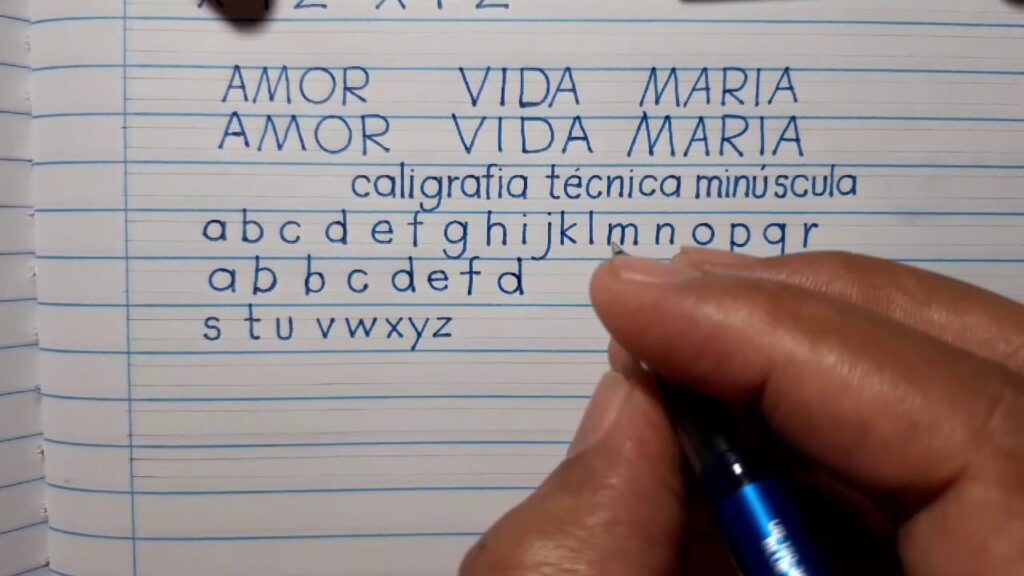 X Y Z X Y Z
AMOR VIDA MARIA
AMOR VIDA MARIA
caligrafia técnica minúscula
a b c d e f g h i j k l m n o p q r
a b b c d e f d
s t u v w x y z